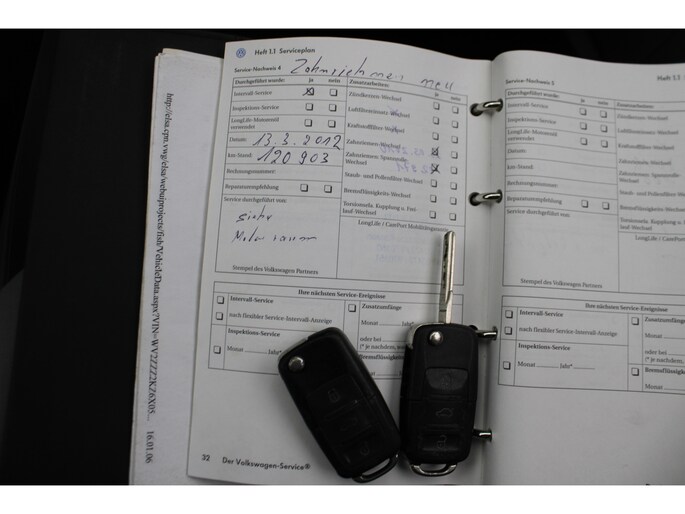 Heft 1.1 Serviceplan
Service-Nachweis 4
Durchgeführt wurde: ja nein
Intervall-Service
Inspektions-Service
LongLife-Motorenöl
verwendet
Datum: 13.3.2012
km-Stand: 120 903
Rechnungsnummer:
Reparaturempfehlung
Service durchgeführt von:
siehe
Stempel des Volkswagen Partners
Zusatzarbeiten: ja nein
Zündkerzen-Wechsel
Luftfiltereinsatz-Wechsel
Kraftstofffilter-Wechsel
Zahnriemen-Wechsel
Zahnriemen; Spannrolle-
Wechsel
Staub- und Pollenfilter-Wechsel
Bremsflüssigkeits-Wechsel
Torsionsela. Kupplung u. Frei-
lauf-Wechsel
LongLife / CarePort Mobilitätsgarantie
Ihre nächsten Service-Ereignisse
Intervall-Service
nach flexibler Service-Intervall-Anzeige
Inspektions-Service
Monat Jahr*
Zusatzumfänge
Monat Jahr*
oder bei
(* je nachdem,
Bremsflüssigkeits
Monat
32 Der Volkswagen-Service®
Heft 1.1
Service-Nachweis 5
Durchgeführt wurde: ja nein
Intervall-Service
Inspektions-Service
LongLife-Motorenöl
verwendet
Datum:
km-Stand:
Rechnungsnummer:
Reparaturempfehlung
Service durchgeführt von:
Stempel des Volkswagen Partners
Zusatzarbeiten:
Zündkerzen-Wechsel
Luftfiltereinsatz-Wechsel
Kraftstofffilter-Wechsel
Zahnriemen-Wechsel
Zahnriemen; Spannrolle-
Wechsel
Staub- und Pollenfilter-Wechsel
Bremsflüssigkeits-Wechsel
Torsionsela. Kupplung u. Frei-
lauf-Wechsel
LongLife / CarePort
Ihre nächsten Service-Ereignisse
Intervall-Service
nach flexibler Service-Intervall-Anzeige
Inspektions-Service
Monat Jahr*
Zusatzumfänge
Monat
oder bei
(* je nachdem, w
Bremsflüssigk
Monat
16.01.06